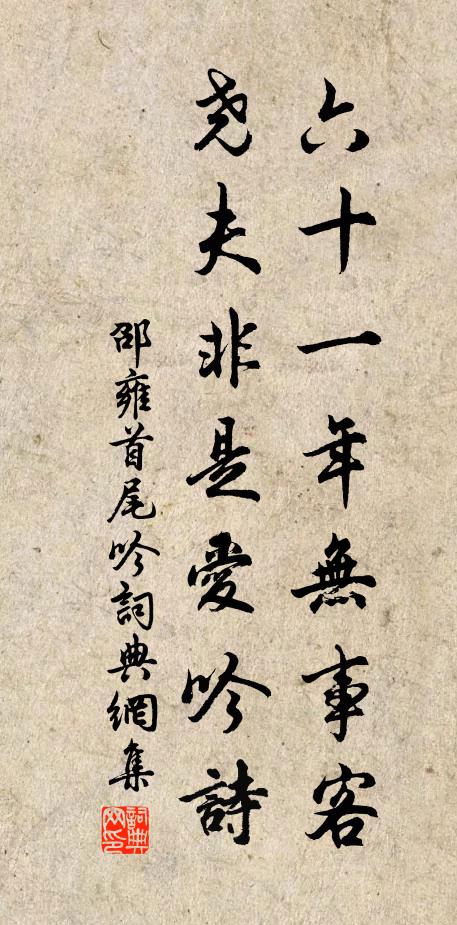 六十一年無事客
尧夫非是愛吟詩
邵雍首尾吟詞典網集
詞典網印